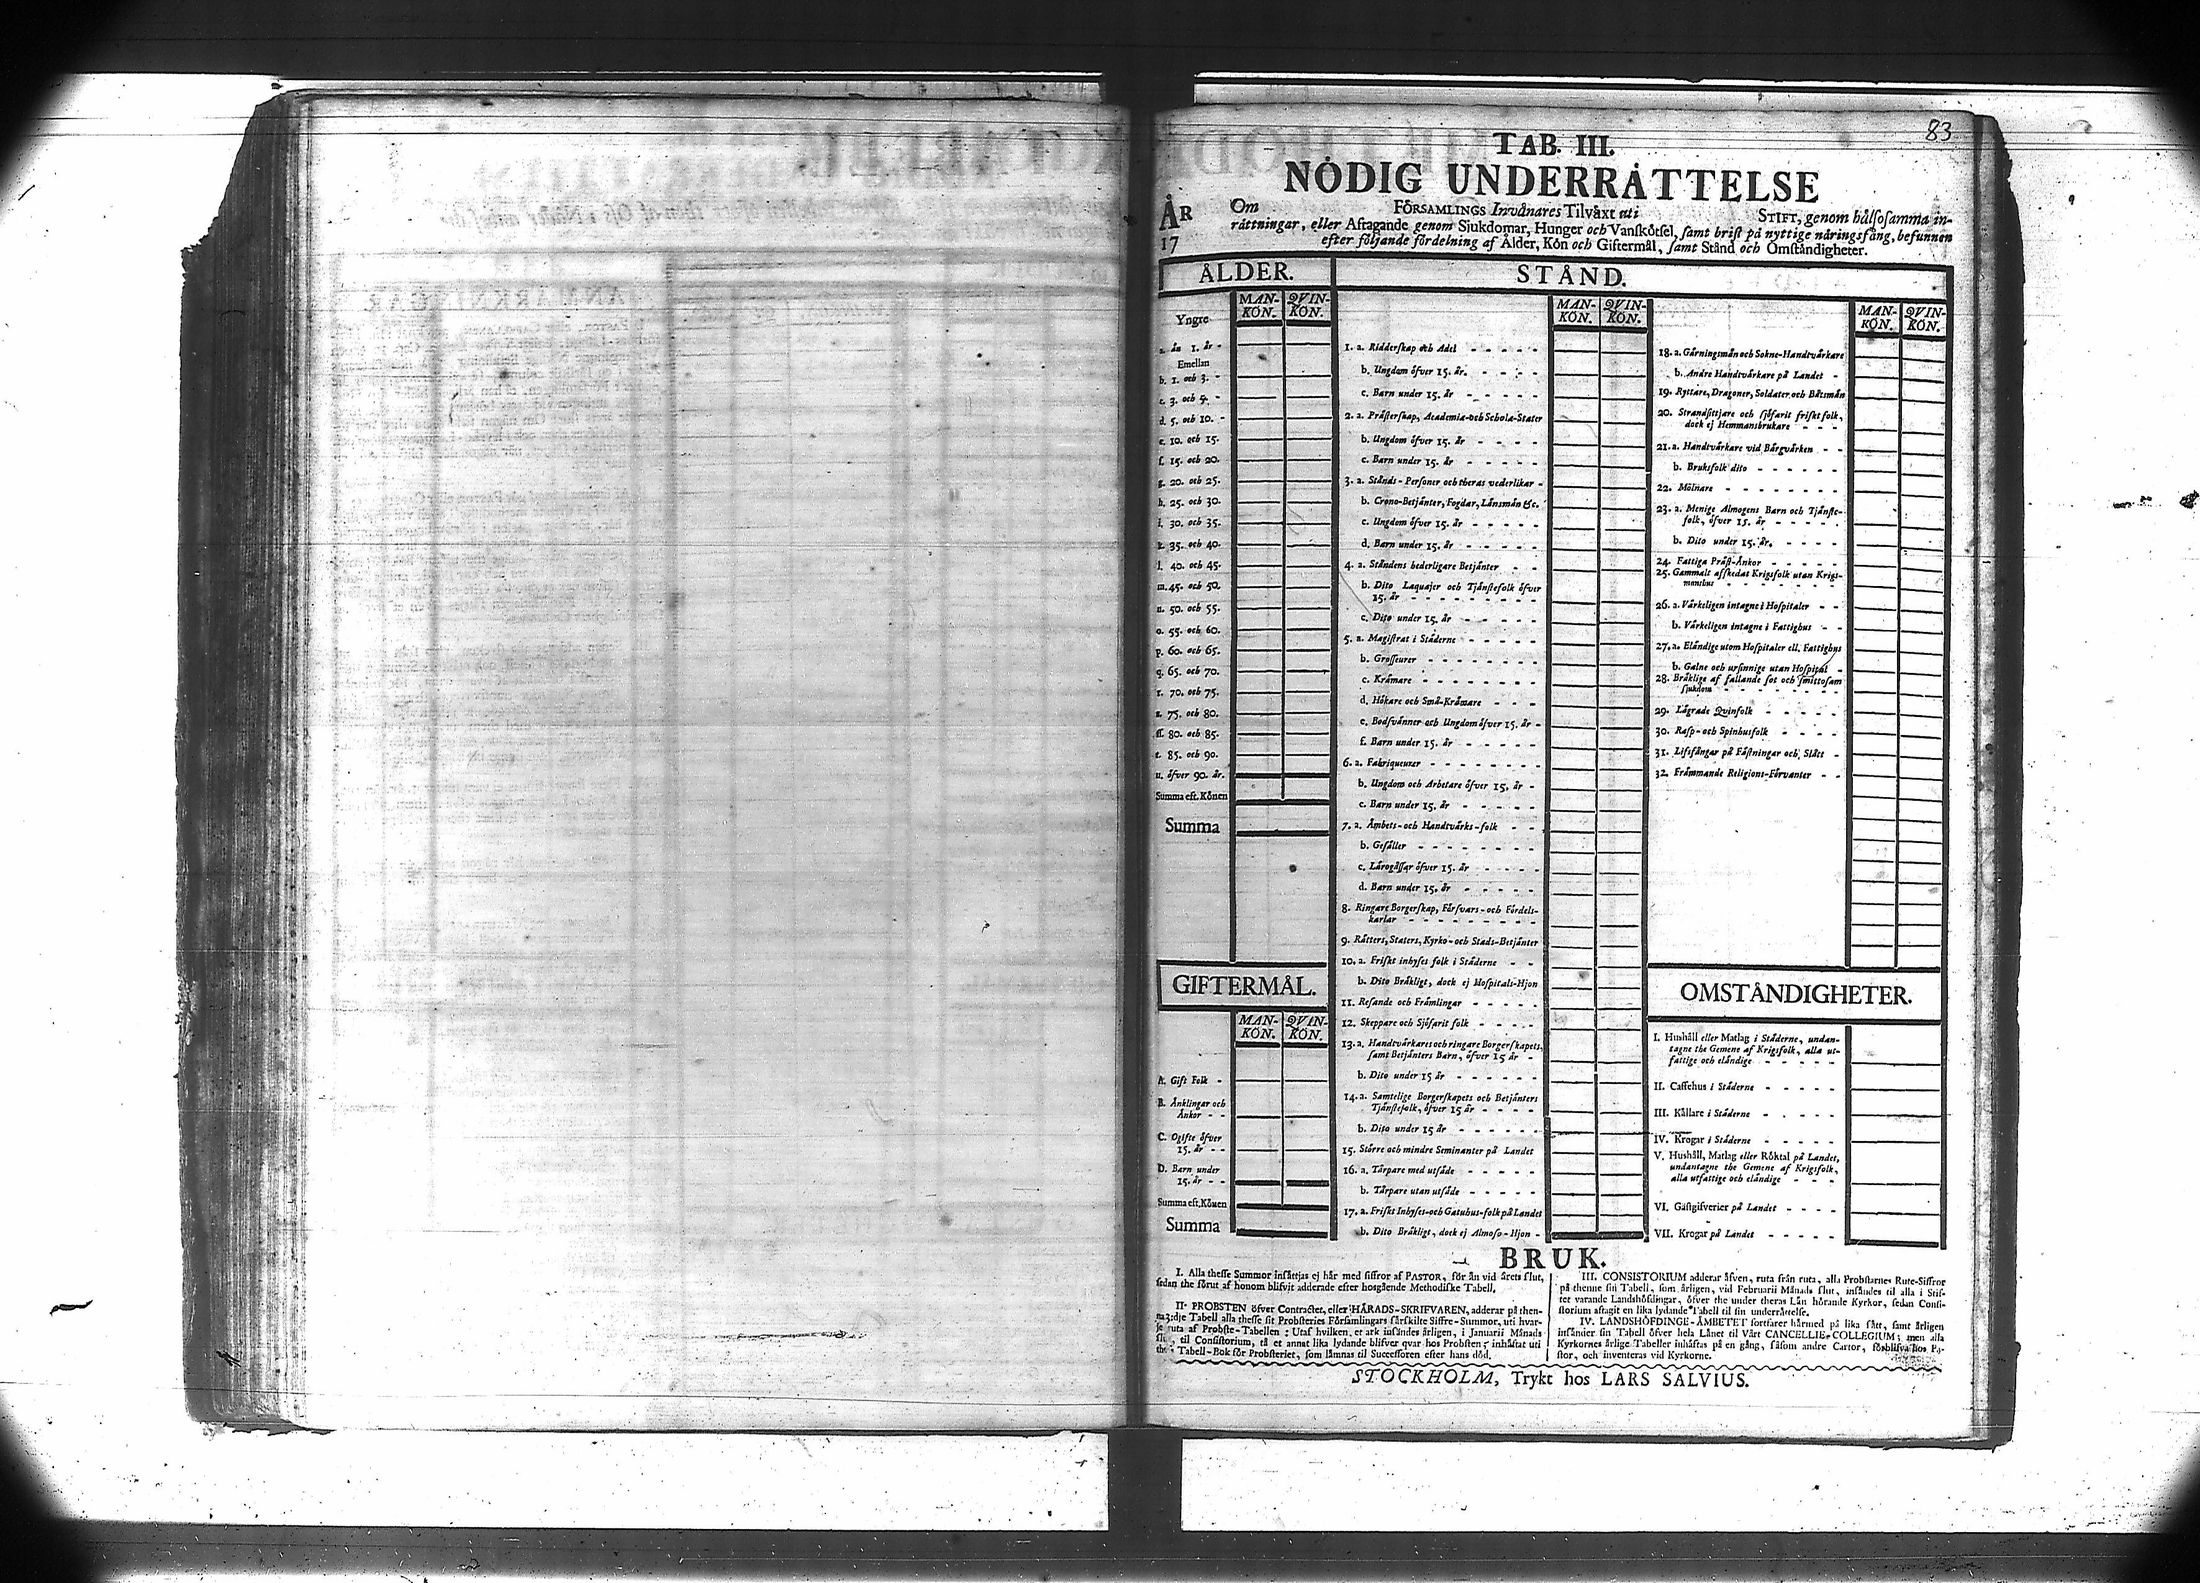 83
TAB. III.
NÖDIG UNDERRÄTTELSE
ÅR
17
Om FÖRSAMLINGS Invånares Tilväxt uti STIFT, genom hälsosamma in-
rättningar, eller Aftagande genom Sjukdomar, Hunger och Vanskötsel, samt brist på nyttige näringsfång, befunnen
efter följande fördelning af Ålder, Kön och Giftermål, samt Stånd och Omständigheter.
ÅLDER.
MAN-KÖN. QVIN-KÖN.
Yngre
a. än 1. år -
Emellan
b. 1. och 3. -
c. 3. och 5. -
d. 5. och 10. -
e. 10. och 15.
f. 15. och 20.
g. 20. och 25.
h. 25. och 30.
i. 30. och 35.
k. 35. och 40.
l. 40. och 45.
m. 45. och 50.
n. 50. och 55.
o. 55. och 60.
p. 60. och 65.
q. 65. och 70.
r. 70. och 75.
s. 75. och 80.
ss. 80. och 85.
t. 85. och 90.
u. öfver 90. år.
Summa eft. Könen
Summa
GIFTERMÅL.
MAN-KÖN. QVIN-KÖN.
A. Gift Folk -
B. Änklingar och
Änkor - -
C. Ogifte öfver
15. år - -
D. Barn under
15. år - -
Summa eft. Könen
Summa
STÅND.
MAN-KÖN. QVIN-KÖN.
1. a. Ridderskap och Adel
b. Ungdom öfver 15. år.
c. Barn under 15. år
2. a. Prästerskap, Academiæ-och Scholæ-Stater
b. Ungdom öfver 15. år
c. Barn under 15. år
3. a. Stånds-Personer och theras vederlikar -
b. Crono-Betjänter, Fogdar, Länsmän &c.
c. Ungdom öfver 15. år
d. Barn under 15. år
4. a. Ståndens hederligare Betjänter
b. Dito Laquajer och Tjänstefolk öfver
15. år
c. Dito under 15. år
5. a. Magistrat i Städerne
b. Grosseurer
c. Krämare
d. Hökare och Små-Krämare
e. Bodsvänner och Ungdom öfver 15. år -
f. Barn under 15. år
6. a. Fabriqueurer
b. Ungdom och Arbetare öfver 15. år -
c. Barn under 15. år
7. a. Ämbets-och Handtvärks-folk
b. Gesäller
c. Lärogåssar öfver 15. år
d. Barn under 15. år
8. Ringare Borgerskap, Försvars-och Fördels-
karlar
9. Rätters, Staters, Kyrko-och Stads-Betjänter
10. a. Friskt inhyses folk i Städerne
b. Dito Bräkligt, dock ej Hospitals-Hjon
11. Resande och Främlingar
12. Skeppare och Sjöfarit folk
13. a. Handtvärkares och ringare Borgerskapets,
samt Betjänters Barn, öfver 15 år -
b. Dito under 15 år
14. a. Samtelige Borgerskapets och Betjänters
Tjänstefolk, öfver 15 år
b. Dito under 15 år
15. Större och mindre Seminanter på Landet
16. a. Tårpare med utsäde
b. Tårpare utan utsäde
17. a. Friskt Inhyses-och Gatuhus-folk på Landet
b. Dito Bräkligt, dock ej Almoso-Hjon -
MAN-KÖN. QVIN-KÖN.
18. a. Gärningsmän och Sokne-Handtvärkare
b. Andre Handtvärkare på Landet -
19. Ryttare, Dragoner, Soldater och Båtsmän
20. Strandsittjare och sjöfarit friskt folk,
dock ej Hemmansbrukare
21. a. Handtvärkare vid Bärgvärken
b. Bruksfolk dito
22. Mölnare
23. a. Menige Almogens Barn och Tjänste-
folk, öfver 15. år
b. Dito under 15. år.
24. Fattiga Präst-Änkor
25. Gammalt afskedat Krigsfolk utan Krigs-
manshus
26. a. Värkeligen intagne i Hospitaler
b. Värkeligen intagne i Fattighus
27. a. Eländige utom Hospitaler ell. Fattighus
b. Galne och ursinnige utan Hospital -
28. Bräklige af fallande sot och smittosam
sjukdom
29. Lägrade Qvinfolk
30. Rasp-och Spinhusfolk
31. Lifsfångar på Fästningar och Slått
32. Främmande Religions-Förvanter
OMSTÄNDIGHETER.
I. Hushåll eller Matlag i Städerne, undan-
tagne the Gemene af Krigsfolk, alla ut-
fattige och eländige
II. Caffehus i Städerne
III. Källare i Städerne
IV. Krogar i Städerne
V. Hushåll, Matlag eller Röktal på Landet,
undantagne the Gemene af Krigsfolk,
alla utfattige och eländige
VI. Gästgifverier på Landet
VII. Krogar på Landet
BRUK.
I. Alla thesse Summor insättjas ej här med siffror af PASTOR, för än vid årets slut,
sedan the förut af honom blifvit adderade efter hosgående Methodiske Tabell.
II. PROBSTEN öfver Contractet, eller HÄRADS-SKRIFVAREN, adderar på then-
na 3:dje Tabell alla thesse sit Probsteries Församlingars särskilte Siffre-Summor, uti hvar-
je ruta af Probste-Tabellen: Utaf hvilken et ark insändes årligen, i Januarii Månads
slut, til Consistorium, tå et annat lika lydande blifver qvar hos Probsten; inhäftat uti
then Tabell-Bok för Probsteriet, som lämnas til Successoren efter hans död.
III. CONSISTORIUM adderar äfven, ruta från ruta, alla Probstarnes Rute-Siffror
på thenne sin Tabell, som årligen, vid Februarii Månads slut, insändes til alla i Stif-
tet varande Landshöfdingar, öfver the under theras Län hörande Kyrkor, sedan Consi-
storium aftagit en lika lydande Tabell til sin underrättelse.
IV. LANDSHÖFDINGE-ÄMBETET fortfarer härmed på lika sätt, samt årligen
insänder sin Tabell öfver hela Länet til Vårt CANCELLIE-COLLEGIUM; men alla
Kyrkornes årlige Tabeller inhäftas på en gång, såsom andre Cartor, förblifva hos Pa-
stor, och inventeras vid Kyrkorne.
STOCKHOLM, Trykt hos LARS SALVIUS.